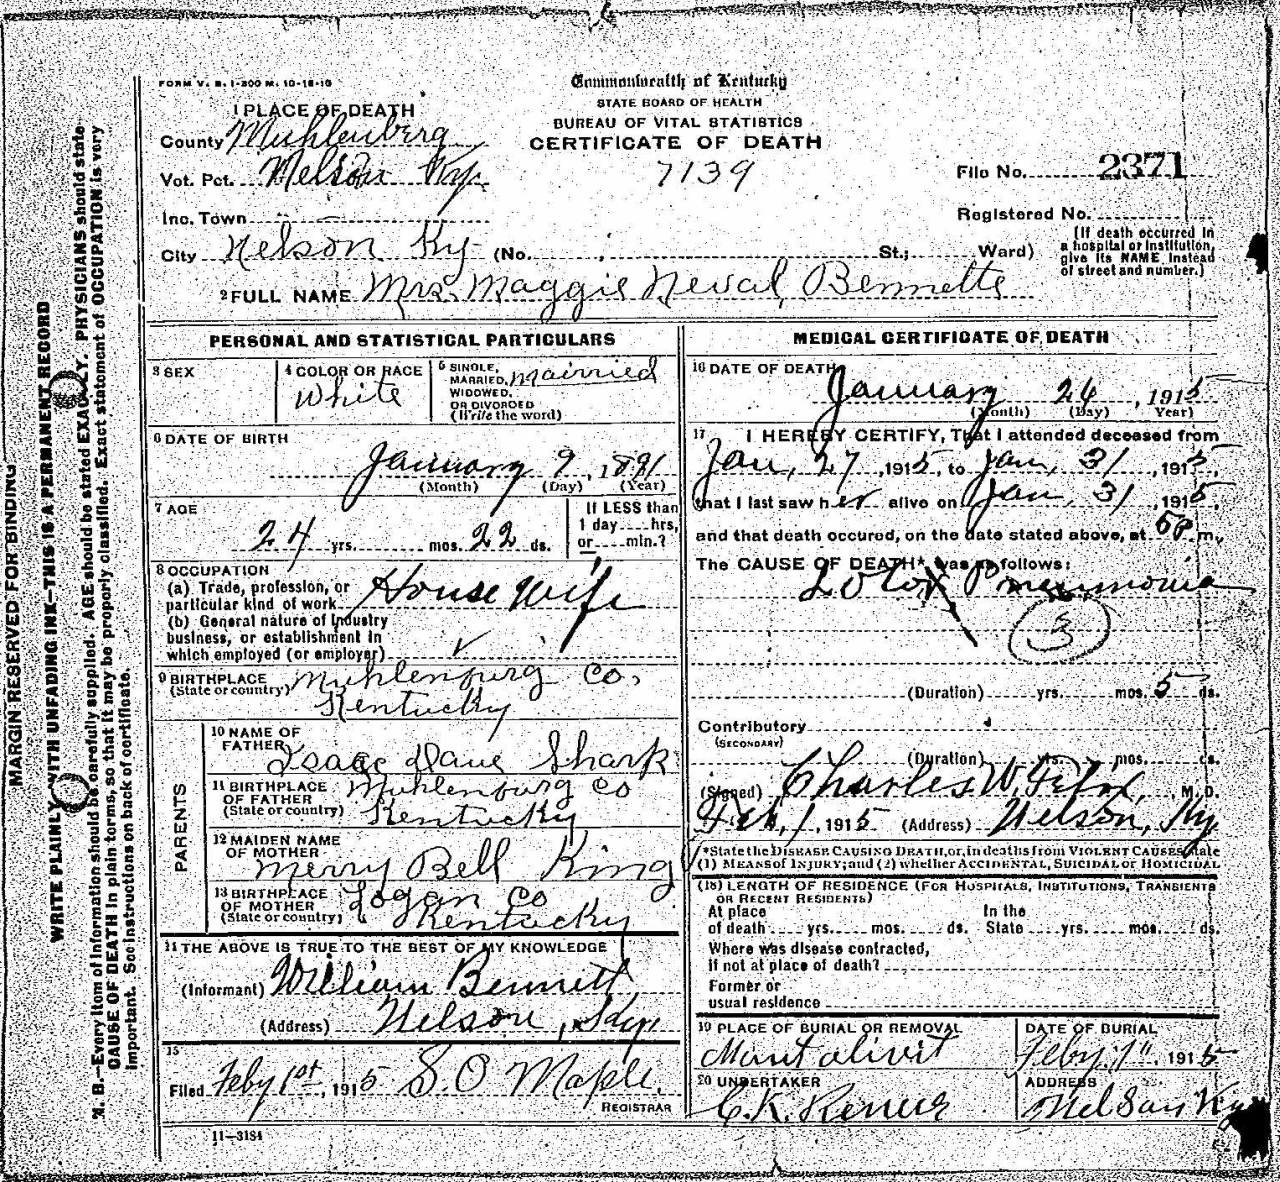 FORM V. S. 1-200 M. 10-18-10
Commonwealth of Kentucky
STATE BOARD OF HEALTH
BUREAU OF VITAL STATISTICS
CERTIFICATE OF DEATH
7139
File No. 2371
Registered No.
(If death occurred in a hospital or institution, give its NAME instead of street and number.)
1 PLACE OF DEATH
County Muhlenberg
Vot. Pct. Nelson Ky.
Inc. Town
City Nelson Ky (No. St.; Ward)
2 FULL NAME Mrs. Maggie Neval Bennette
PERSONAL AND STATISTICAL PARTICULARS
3 SEX
4 COLOR OR RACE
White
5 SINGLE, MARRIED, WIDOWED, OR DIVORCED (Write the word) Mairried
6 DATE OF BIRTH
January 9, 1891
(Month) (Day) (Year)
7 AGE
24 yrs. mos. 22 ds.
If LESS than 1 day hrs, or min.?
8 OCCUPATION
(a) Trade, profession, or particular kind of work House Wife
(b) General nature of industry business, or establishment in which employed (or employer)
9 BIRTHPLACE (State or country) Muhlenburg Co, Kentucky
PARENTS
10 NAME OF FATHER Isaac Dave Shark
11 BIRTHPLACE OF FATHER (State or country) Muhlenburg Co Kentucky
12 MAIDEN NAME OF MOTHER Merry Bell King
13 BIRTHPLACE OF MOTHER (State or country) Logan Co Kentucky
11 THE ABOVE IS TRUE TO THE BEST OF MY KNOWLEDGE
(Informant) William Bennett
(Address) Nelson,
15
Filed Feby 1st, 1915 S.O Maple.
REGISTRAR
11-3184
MEDICAL CERTIFICATE OF DEATH
16 DATE OF DEATH
January 26, 1915
(Month) (Day) Year)
17 I HEREBY CERTIFY, That I attended deceased from
Jan, 27, 1915, to Jan, 31, 1915,
that I last saw her alive on Jan, 31, 1915,
and that death occured, on the date stated above, at 5P m.
The CAUSE OF DEATH* was as follows:
Pneumonia
3
(Duration) yrs. mos. 5 ds.
Contributory
(SECONDARY)
(Duration) yrs. mos. ds.
(Signed) Charles W. Felix, M.D.
Feb, 1, 1915 (Address) Nelson, Ky
*State the DISEASE CAUSING DEATH, or, in deaths from VIOLENT CAUSES, state
(1) MEANS of INJURY; and (2) whether ACCIDENTAL, SUICIDAL or HOMICIDAL
(18) LENGTH OF RESIDENCE (FOR HOSPITALS, INSTITUTIONS, TRANSIENTS OR RECENT RESIDENTS)
At place of death yrs. mos. ds.
In the State yrs. mos. ds.
Where was disease contracted,
if not at place of death?
Former or
usual residence
19 PLACE OF BURIAL OR REMOVAL
Mant olivit
DATE OF BURIAL
Feby. 1", 1915
20 UNDERTAKER
C.K.
ADDRESS
Nelson Ky
MARGIN RESERVED FOR BINDING
WRITE PLAINLY WITH UNFADING INK—THIS IS A PERMANENT RECORD
N. B.—Every item of information should be carefully supplied. AGE should be stated EXACTLY. PHYSICIANS should state
CAUSE OF DEATH in plain terms, so that it may be properly classified. Exact statement of OCCUPATION is very
important. See instructions on back of certificate.